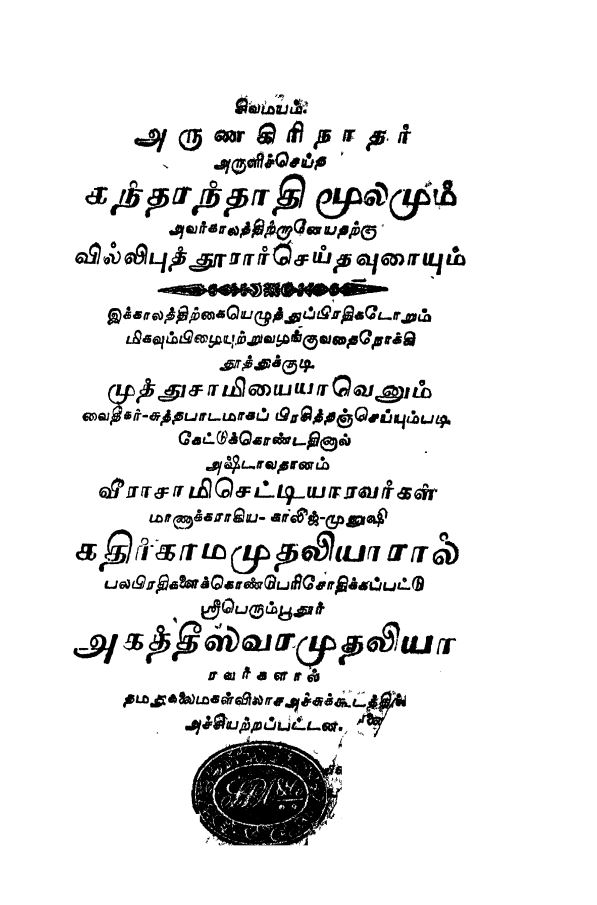 சிவமயம்.
அருணகிரிநாதர்
அருளிச்செய்த
கந்தரந்தாதி மூலமும்
அவர்காலத்திற்றானேயதற்கு
வில்லிபுத்தூரார்செய்தவுரையும்
இக்காலத்திற்கையெழுத்துப்பிரதிகடோறும்
மிகவும்பிழையுற்றுவழங்குவதைநோக்கி
தூத்துக்குடி
முத்துசாமியையாவெனும்
வைதீகர்-சுத்தபாடமாகப் பிரசித்தஞ்செய்யும்படி
கேட்டுக்கொண்டதினால்
அஷ்டாவதானம்
வீராசாமிசெட்டியாரவர்கள்
மாணாக்கராகிய-காலிஜ்-முனுஷி
கதிர்காமமுதலியாரால்
பலபிரதிகளைக்கொண்டுபரிசோதிக்கப்பட்டு
ஸ்ரீபெரும்பூதூர்
அகத்தீஸ்வரமுதலியா
ரவர்களால்
தமதுகலைமகள்விலாசஅச்சுக்கூடத்தில்
அச்சியற்றப்பட்டன.